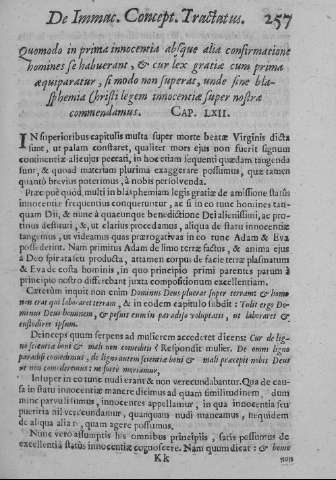 De Immac. Concept. Tractatus. 257
Quomodo in prima innocentia absque alia confirmatione
homines se habuerant, & cur lex gratiæ cum prima
æquiparatur, si modo non superat, unde sine bla-
sphemia Christi legem innocentiæ super nostræ
commendamus. CAP. LXII.
IN superioribus capitulis multa super morte beatæ Virginis dicta
sunt, ut palam constaret, qualiter mors ejus non fuerit signum
continentiæ alicujus peccati, in hoc etiam sequenti quædam tangenda
sunt, & quoad materiam plurima exaggerare possumus, quæ tamen
quantò brevius poterimus, à nobis pertvolvenda.
Præ quod multi in blasphemiam legis gratiæ de amissione status
innocentiæ frequentius conqueruntur, ac si in eo tunc homines tan-
quam Dii, & nunc à quacunque benedictione Dei alienissimi, ac pro-
tinus destituti, &, ut clarius procedamus, aliqua de statu innocentiæ
tangemus, ut videamus quas prærogativas in eo tunc Adam & Eva
possederint. Nam primitus Adam de limo terræ factus, & anima ejus
à Deo spirata fecit producta, attamen corpus de facie terræ plasmatum
& Eva de costa hominis, in quo principio primi parentes parum à
principio nostro differebant juxta compositionum excellentiam.
Cæterùm inquit non enim Dominus Deus pluerat super terram & homo
non erat qui laboraret terram, & in eodem capitulo subdit: Tulit ergo Do-
minus Deus hominem, & posuit eum in paradiso voluptatis, ut laboraret &
custodiret ipsum.
Deinceps quum serpens ad mulierem accederet dicens: Cur de lig-
no scientiæ boni & mali non comeditis? Respondit mulier. De omni ligno
paradisi comedimus, de ligno autem scientiæ boni & mali præcepit nobis Deus
ut non comederemus: ne forte moriamur,
Insuper in eo tunc nudi erant & non verecundabantur. Qua de cau-
sa in statu innocentiæ manere dicimus ad quam similitudinem, dum
nunc parvuli sumus, innocentes appellamur, in qua innocentia seu
pueritia nil verecundamur, quanquam nudi maneamus, siquidem
de aliqua alia, quam agere possumus.
Nunc vero assumptis his omnibus principiis, satis possumus de
excellentia status innocentiæ cognoscere. Nam quum dicat: & homo
Kk non